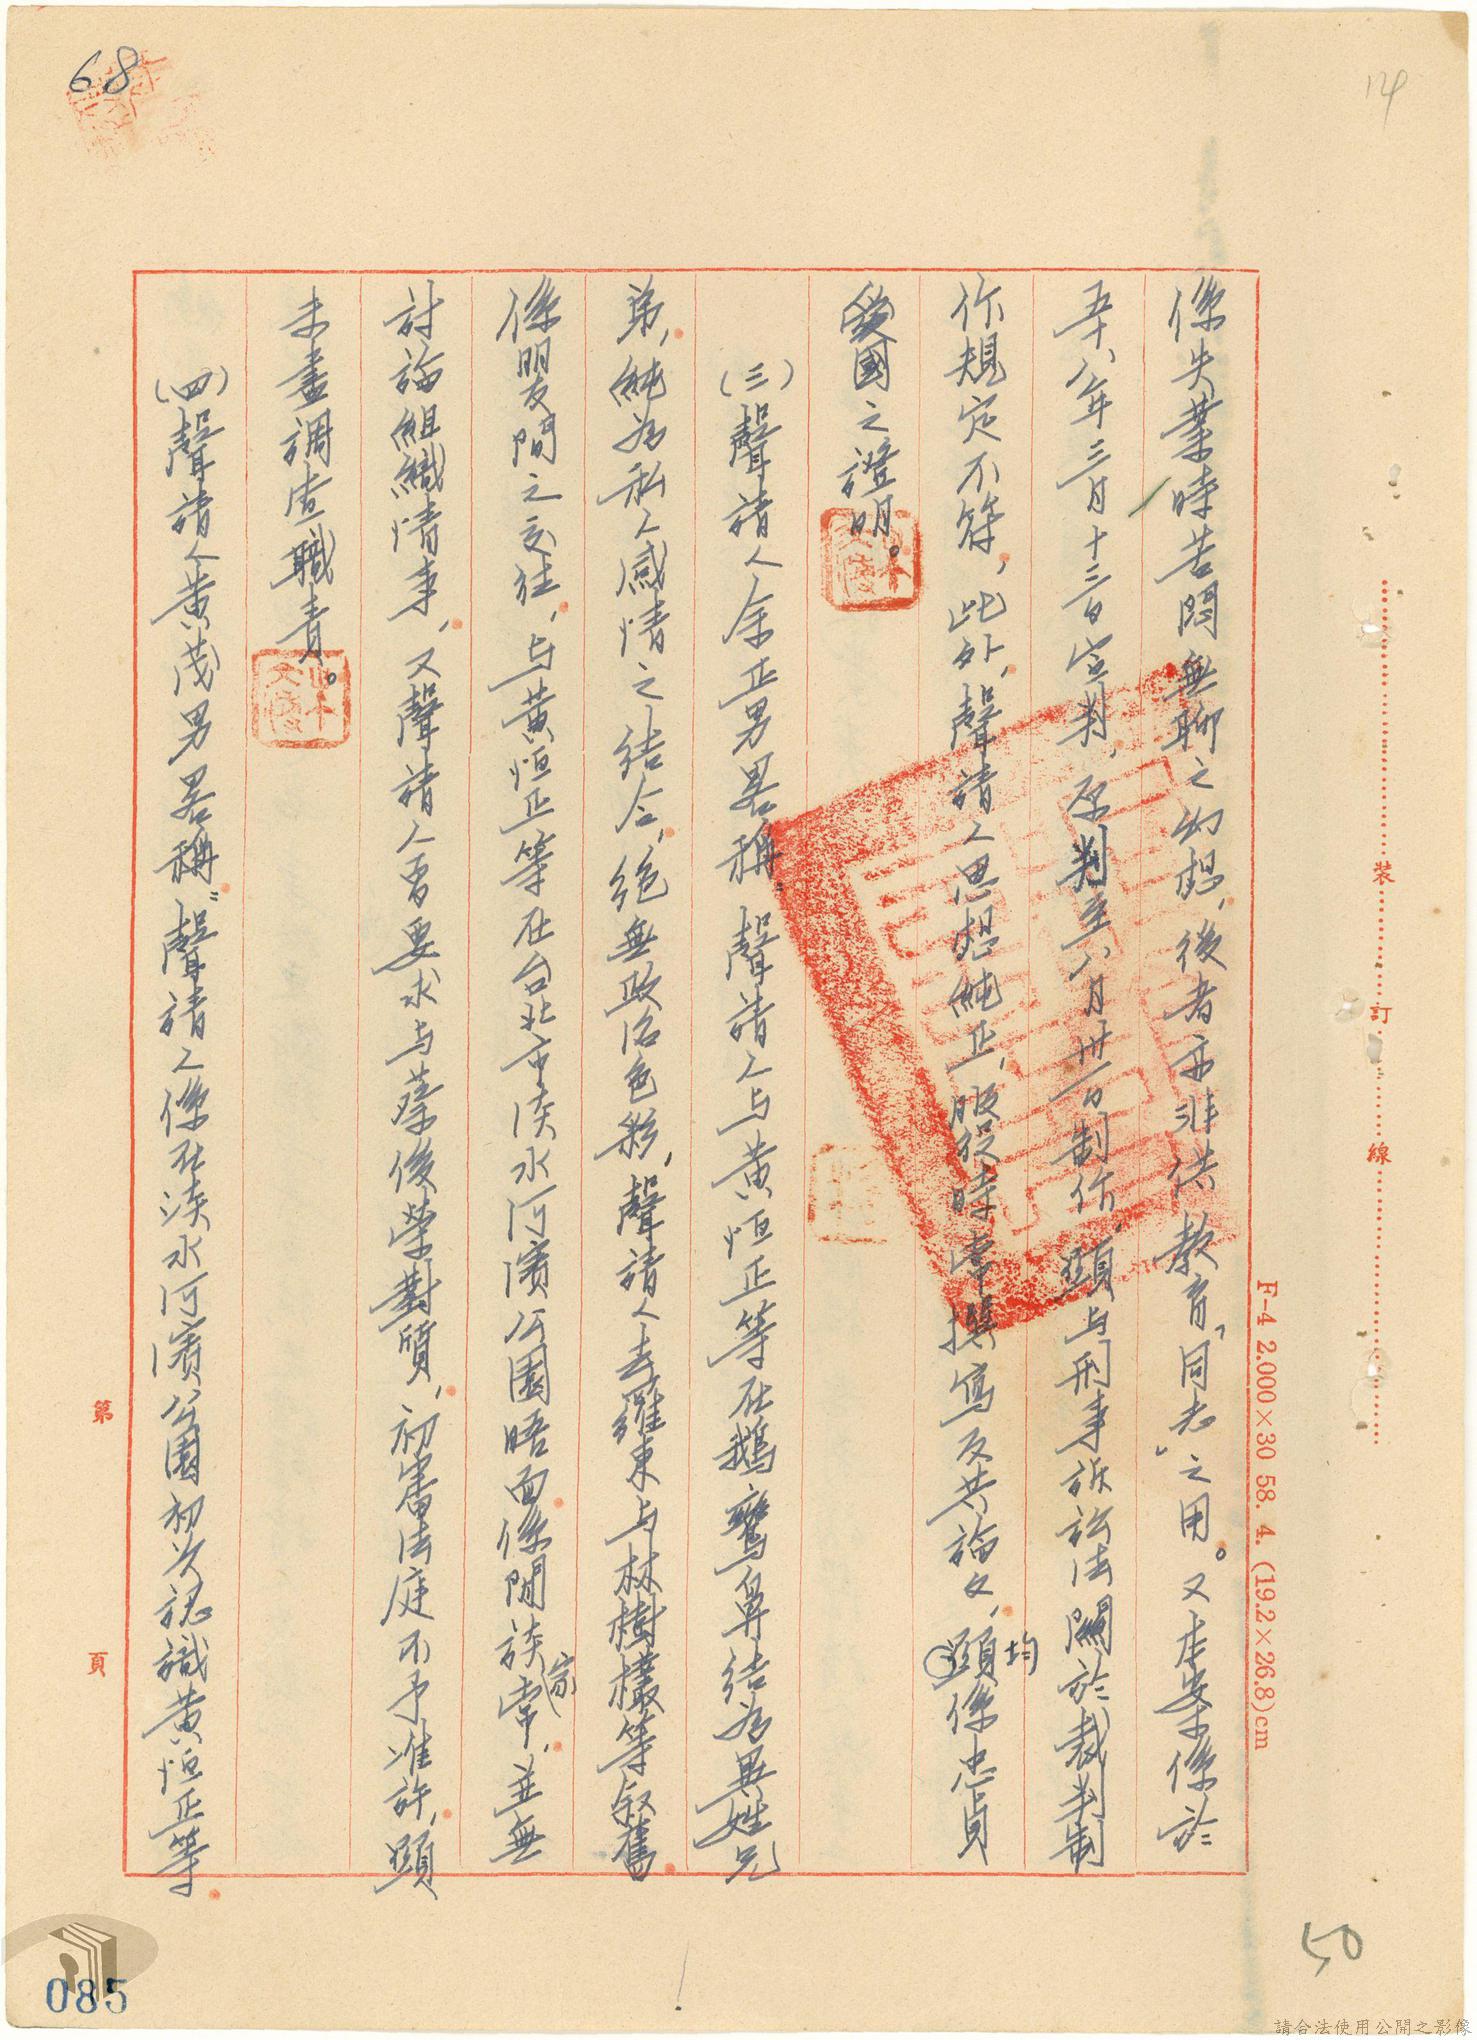 68
14
係失業時苦悶無聊之幻想，後者亦非供教育「同志」之用。又本案係於
五十八年三月十三日宣判，原判至八月卅一日制作，顯与刑事訴訟法關於裁判制
作規定不符，此外，聲請人思想純正，服役時常撰寫反共論文，均顯係忠貞
愛國之證明。
(三)聲請人余正男畧稱：聲請人与黃恒正等在鵝鸞鼻結為異姓兄
弟，純為私人感情之結合，絕無政治色彩，聲請人去羅東与林樹欉等叙舊
係朋友間之交往，与黃恒正等在台北市淡水河濱公園晤面係閒談家常，並無
討論組織情事，又聲請人曾要求与蔡俊榮對質，初審法庭不予准許，顯
未盡調查職責。
(四)聲請人黃茂男畧稱：聲請人係在淡水河濱公園初次認識黃恒正等，
裝
訂
線
F-4 2.000×30 58. 4. (19.2×26.8)cm
第
頁
50
085
請合法使用公開之影像